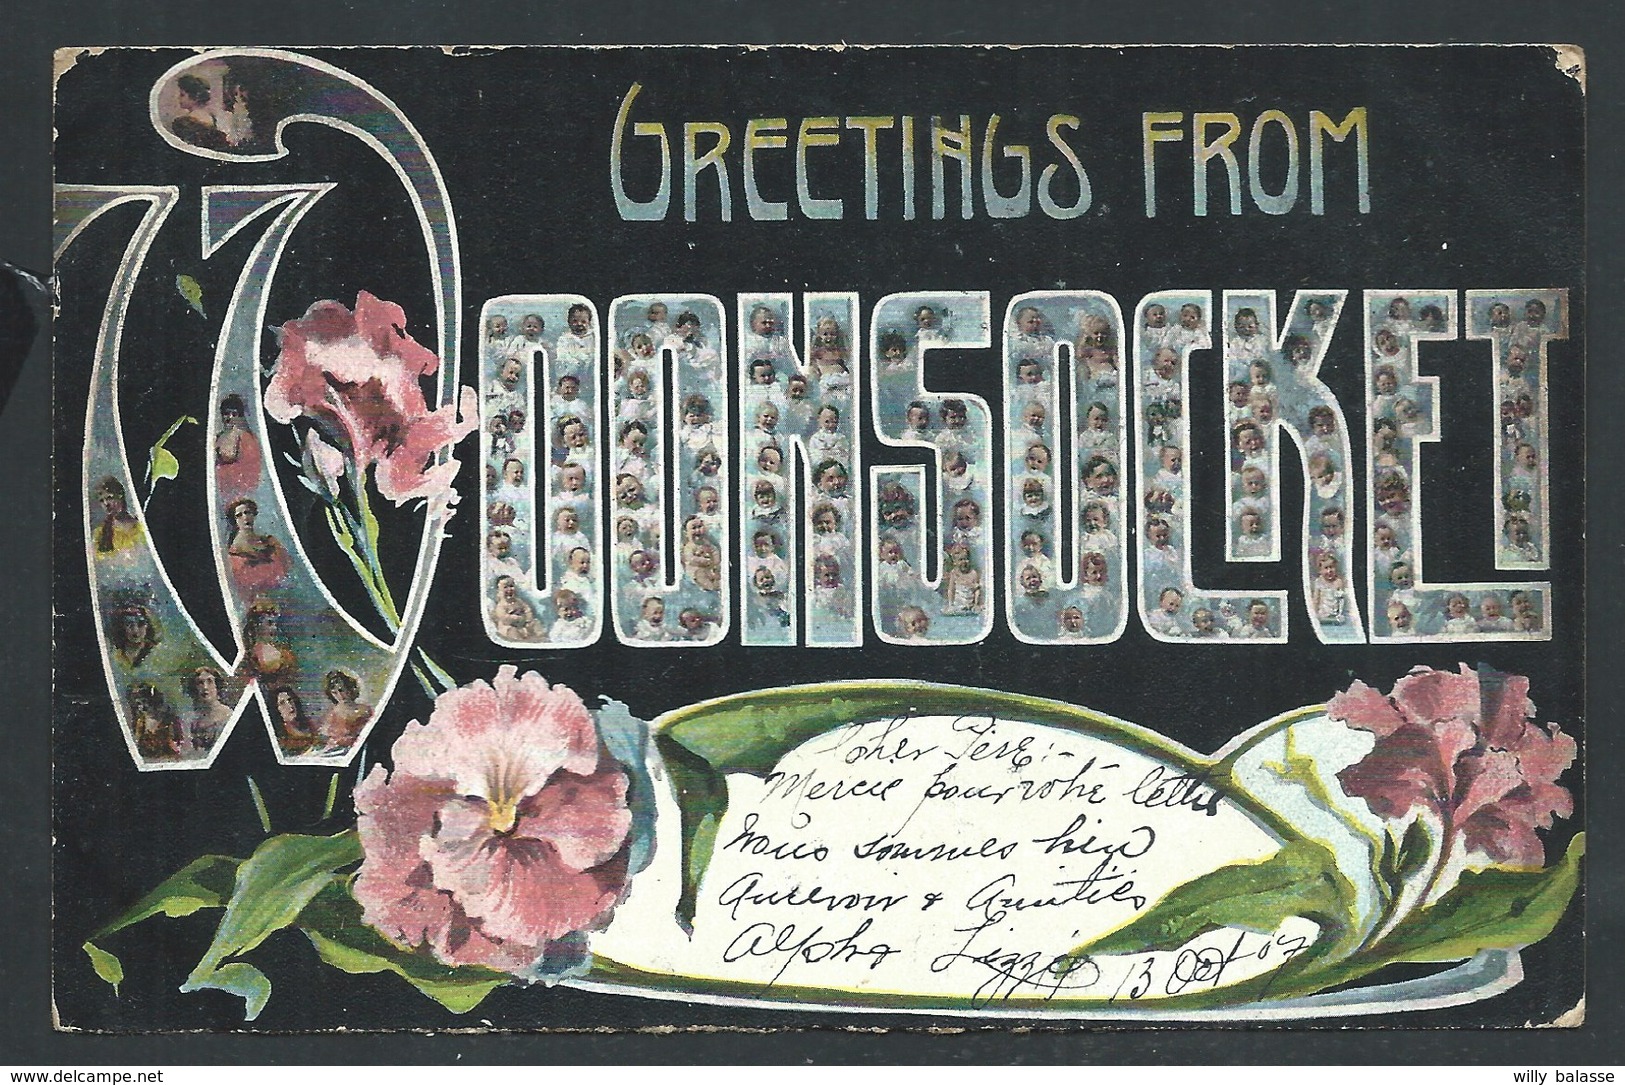 GREETINGS FROM
WOONSOCKET
Cher Père:-
Mercie pour votre lettre
Nous sommes bien
Aurevoir & Amitiés
Alpha Lizzie 13 Oct 07
www.delcampe.net
willy balasse